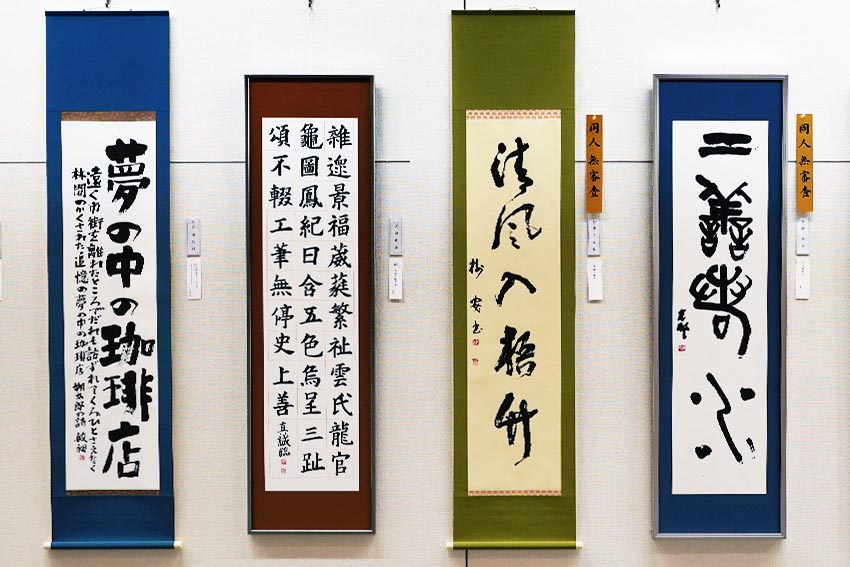 夢の中の珈琲店
遠く市街を離れたところでだれも訪ずれてくるひとさえなく
林間のかくされた追憶の夢の中の珈琲店 朔太郎の詩
雜遝景福葳蕤繁祉雲氏龍官
龜圖鳳紀日含五色烏呈三趾
頌不輟工筆無停史上善 直誠臨
清風入梧竹
同人無審査
上善若水
同人無審査